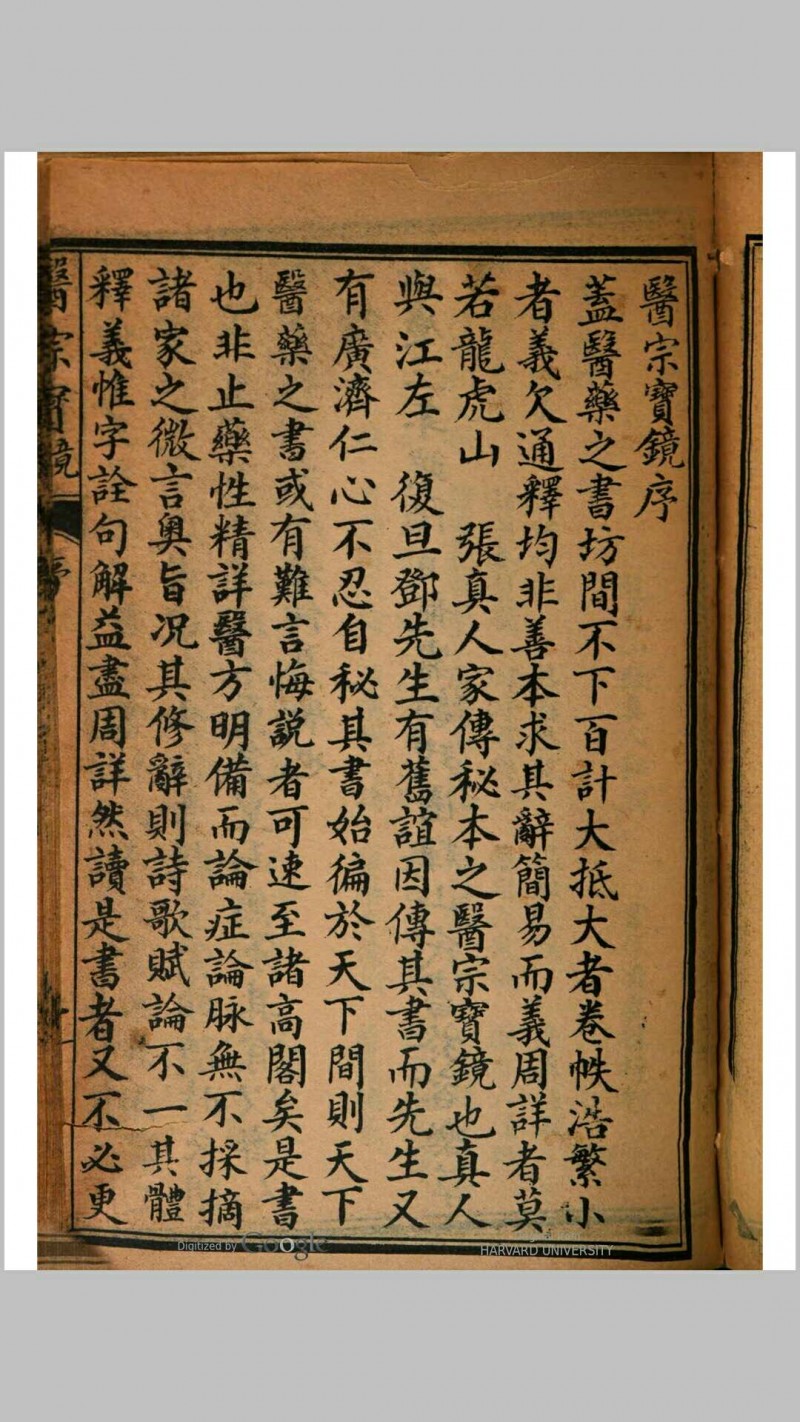 醫宗寶鏡序
蓋醫藥之書坊間不下百計大抵大者卷帙浩繁小
者義欠通釋均非善本求其辭簡易而義周詳者莫
若龍虎山　張真人家傳秘本之醫宗寶鏡也真人
與江左　復旦鄧先生有舊誼因傳其書而先生又
有廣濟仁心不忍自秘其書始徧於天下間則天下
醫藥之書或有難言悔説者可速至諸高閣矣是書
也非止藥性精詳醫方明備而論症論脉無不採摘
諸家之微言奥旨况其修辭則詩歌賦論不一其體
釋義惟字詮句解益盡周詳然讀是書者又不必更
醫宗寶鏡
序
Digitized by Google
HARVARD UNIVERSITY